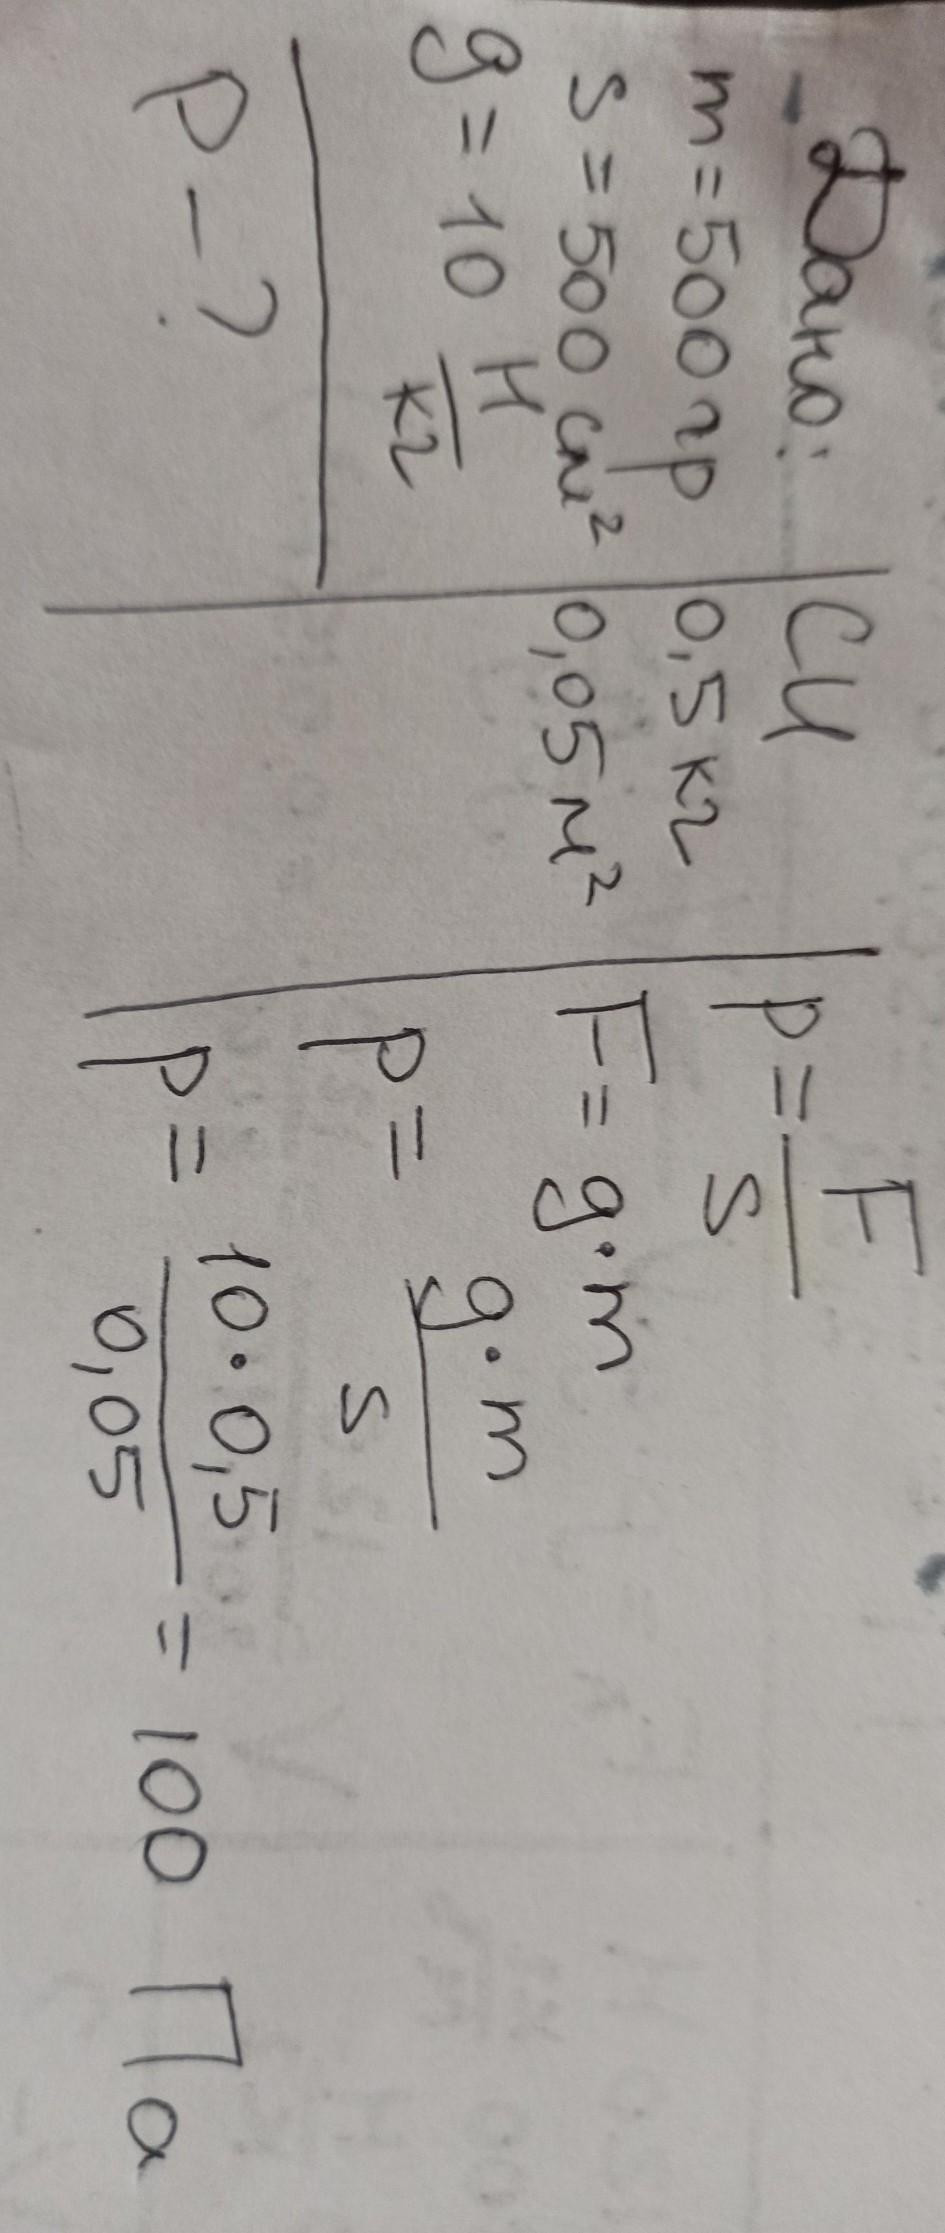 Дано:
m = 500 гр
s = 500 см²
g = 10 Н/кг
P - ?
СИ
0,5 кг
0,05 м²
P = F/s
F = g · m
P = g · m / s
P = 10 · 0,5 / 0,05 = 100 Па